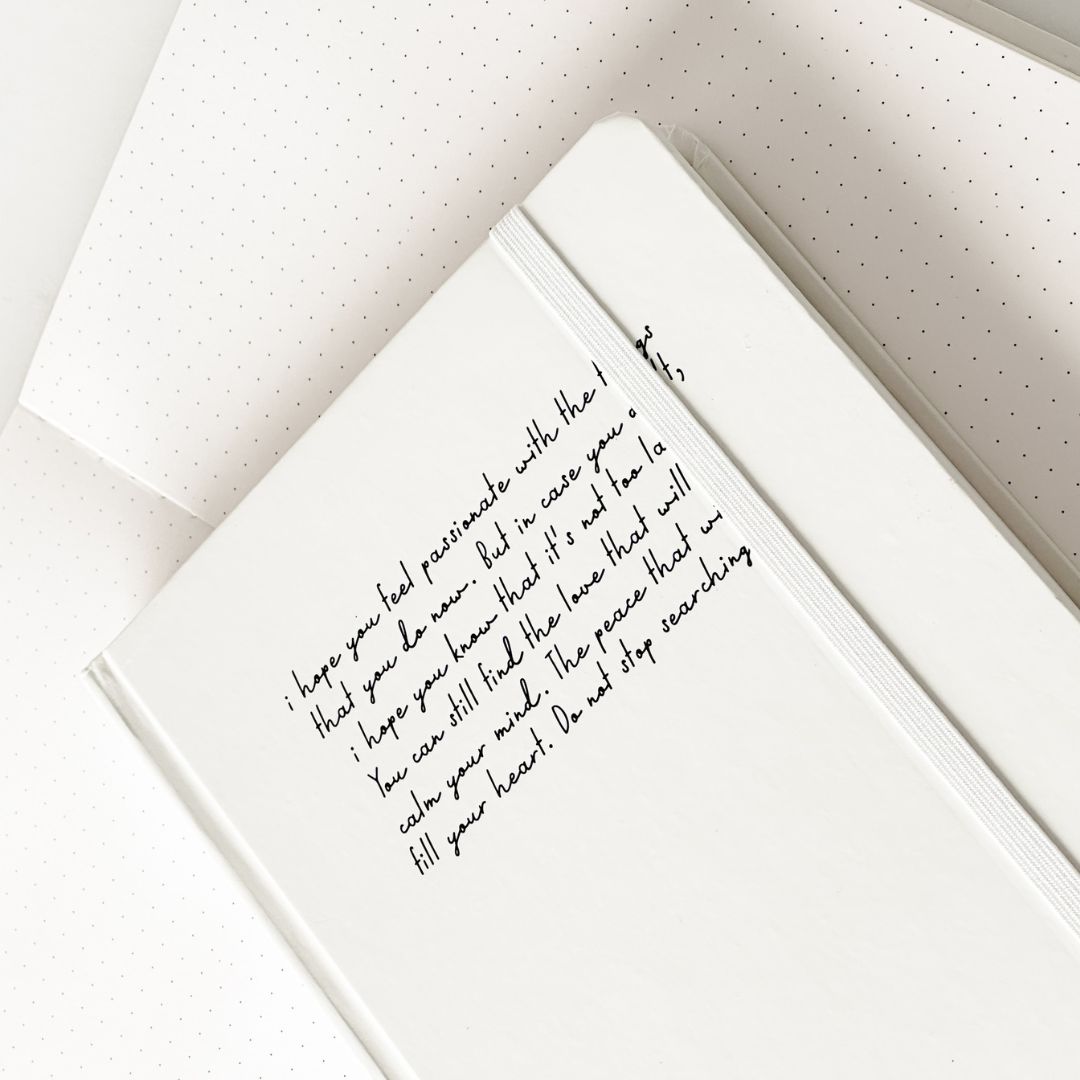 i hope you feel passionate with the
that you do now. But in case you
i hope you know that it's not too
You can still find the love that will
calm your mind. The peace that
fill your heart. Do not stop searching